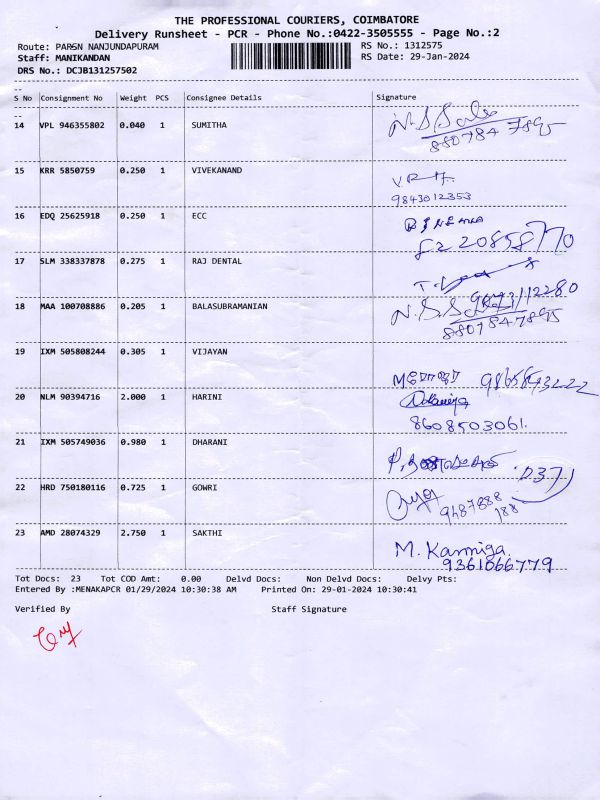 THE PROFESSIONAL COURIERS, COIMBATORE
Delivery Runsheet - PCR - Phone No.:0422-3505555 - Page No.:2
Route: PARSN NANJUNDAPURAM RS No.: 1312575
Staff: MANIKANDAN RS Date: 29-Jan-2024
DRS No.: DCJB131257502
S No Consignment No Weight PCS Consignee Details Signature
14 VPL 946355802 0.040 1 SUMITHA
8807847895
15 KRR 5850759 0.250 1 VIVEKANAND
9843012353
16 EDQ 25625918 0.250 1 ECC
17 SLM 338337878 0.275 1 RAJ DENTAL
18 MAA 100708886 0.205 1 BALASUBRAMANIAN
8807847895
19 IXM 505808244 0.305 1 VIJAYAN
20 NLM 90394716 2.000 1 HARINI
8608503061.
21 IXM 505749036 0.980 1 DHARANI
22 HRD 750180116 0.725 1 GOWRI
9487888
188
23 AMD 28074329 2.750 1 SAKTHI
M. Kanniga.
9361066779
Tot Docs: 23 Tot COD Amt: 0.00 Delvd Docs: Non Delvd Docs: Delvy Pts:
Entered By :MENAKAPCR 01/29/2024 10:30:38 AM Printed On: 29-01-2024 10:30:41
Verified By Staff Signature